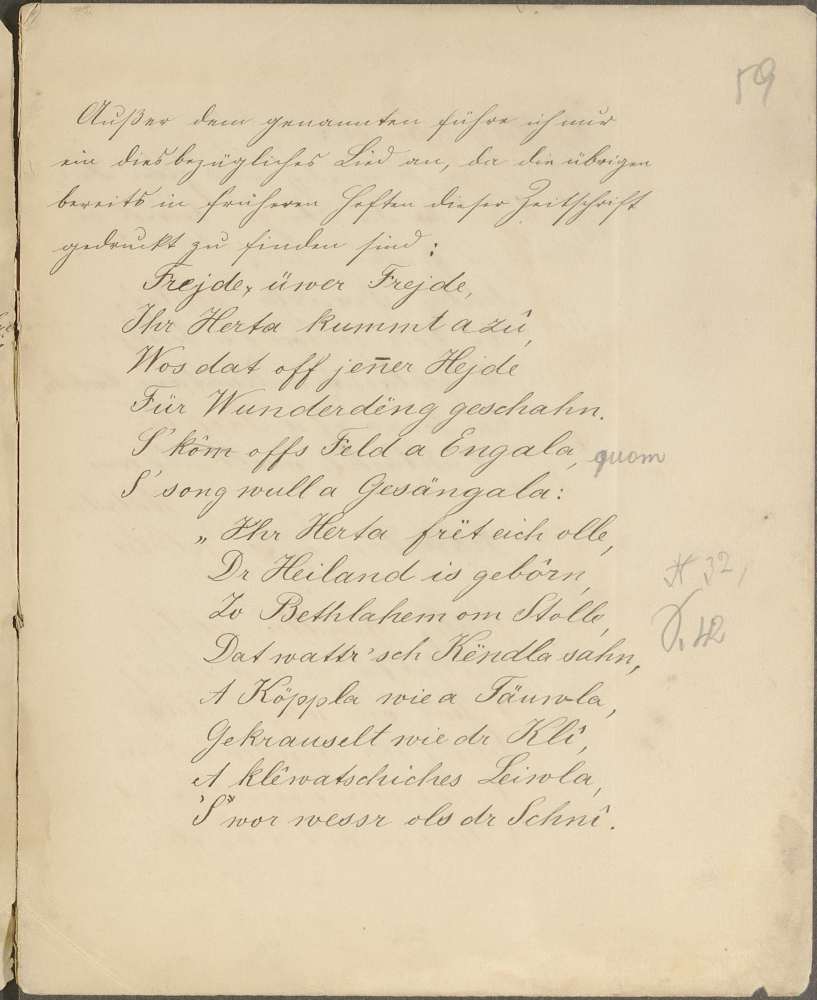 59
Außer dem genannten führe ich nur
ein diesbezügliches Lied an, da die übrigen
bereits in früheren Heften dieser Zeitschrift
gedruckt zu finden sind:
Frejde, üwer Frejde,
Ihr Herta kummt a zû,
Wos dat off jen̄er Hejde
Für Wunderdëng geschahn.
S' kôm offs Feld a Engala, quom
S' song wull a Gesängala:
„Ihr Herta frët eich olle,
Dr Heiland is gebôrn,
Zo Bethlahem om Stolle,
Dat wattr'sch Këndla sahn,
A Köppla wie a Täuwla,
Gekrauselt wie dr Klî,
A klêwatschiches Leiwla,
'S' wor wessr ols dr Schnî.
32,
42